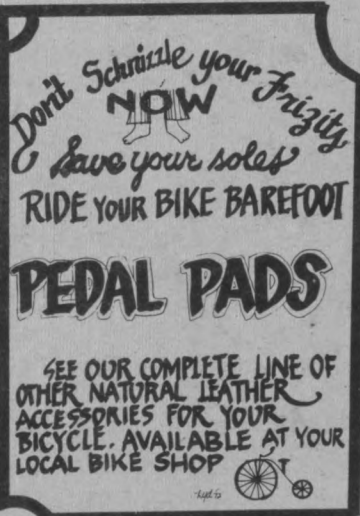 Don't Schnizzle your Frizity
NOW
Save your soles
RIDE YOUR BIKE BAREFOOT
PEDAL PADS
SEE OUR COMPLETE LINE OF
OTHER NATURAL LEATHER
ACCESSORIES FOR YOUR
BICYCLE. AVAILABLE AT YOUR
LOCAL BIKE SHOP